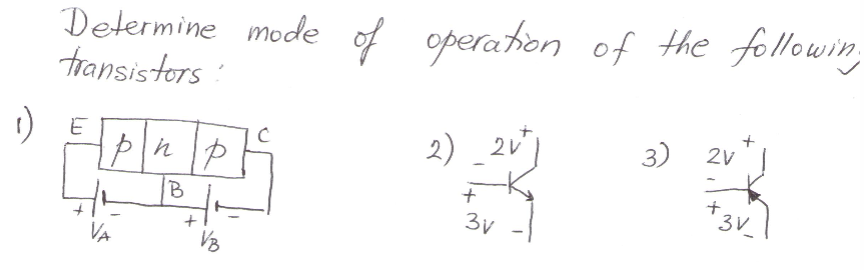 Determine mode of operation of the following
transistors :
1) E p n p C
B
+ - + -
VA VB
2) - 2V +
+ 3V -
3) 2V +
-
+ 3V -